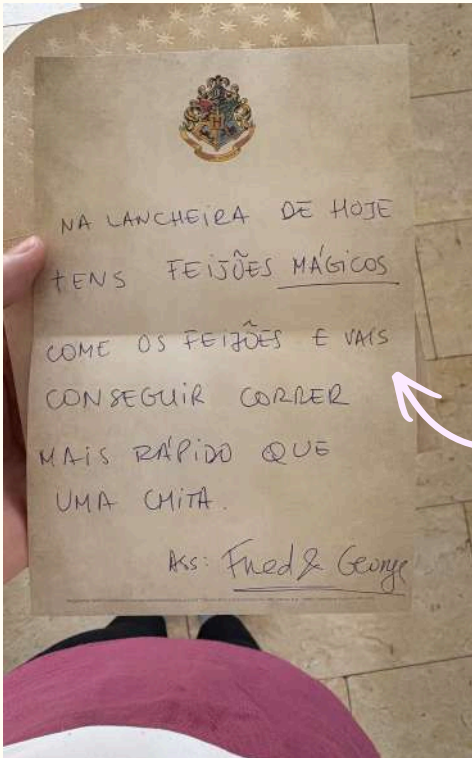 NA LANCHEIRA DE HOJE
TENS FEIJÕES MÁGICOS
COME OS FEIJÕES E VAIS
CONSEGUIR CORRER
MAIS RÁPIDO QUE
UMA CHITA.
ASS: Fred & George